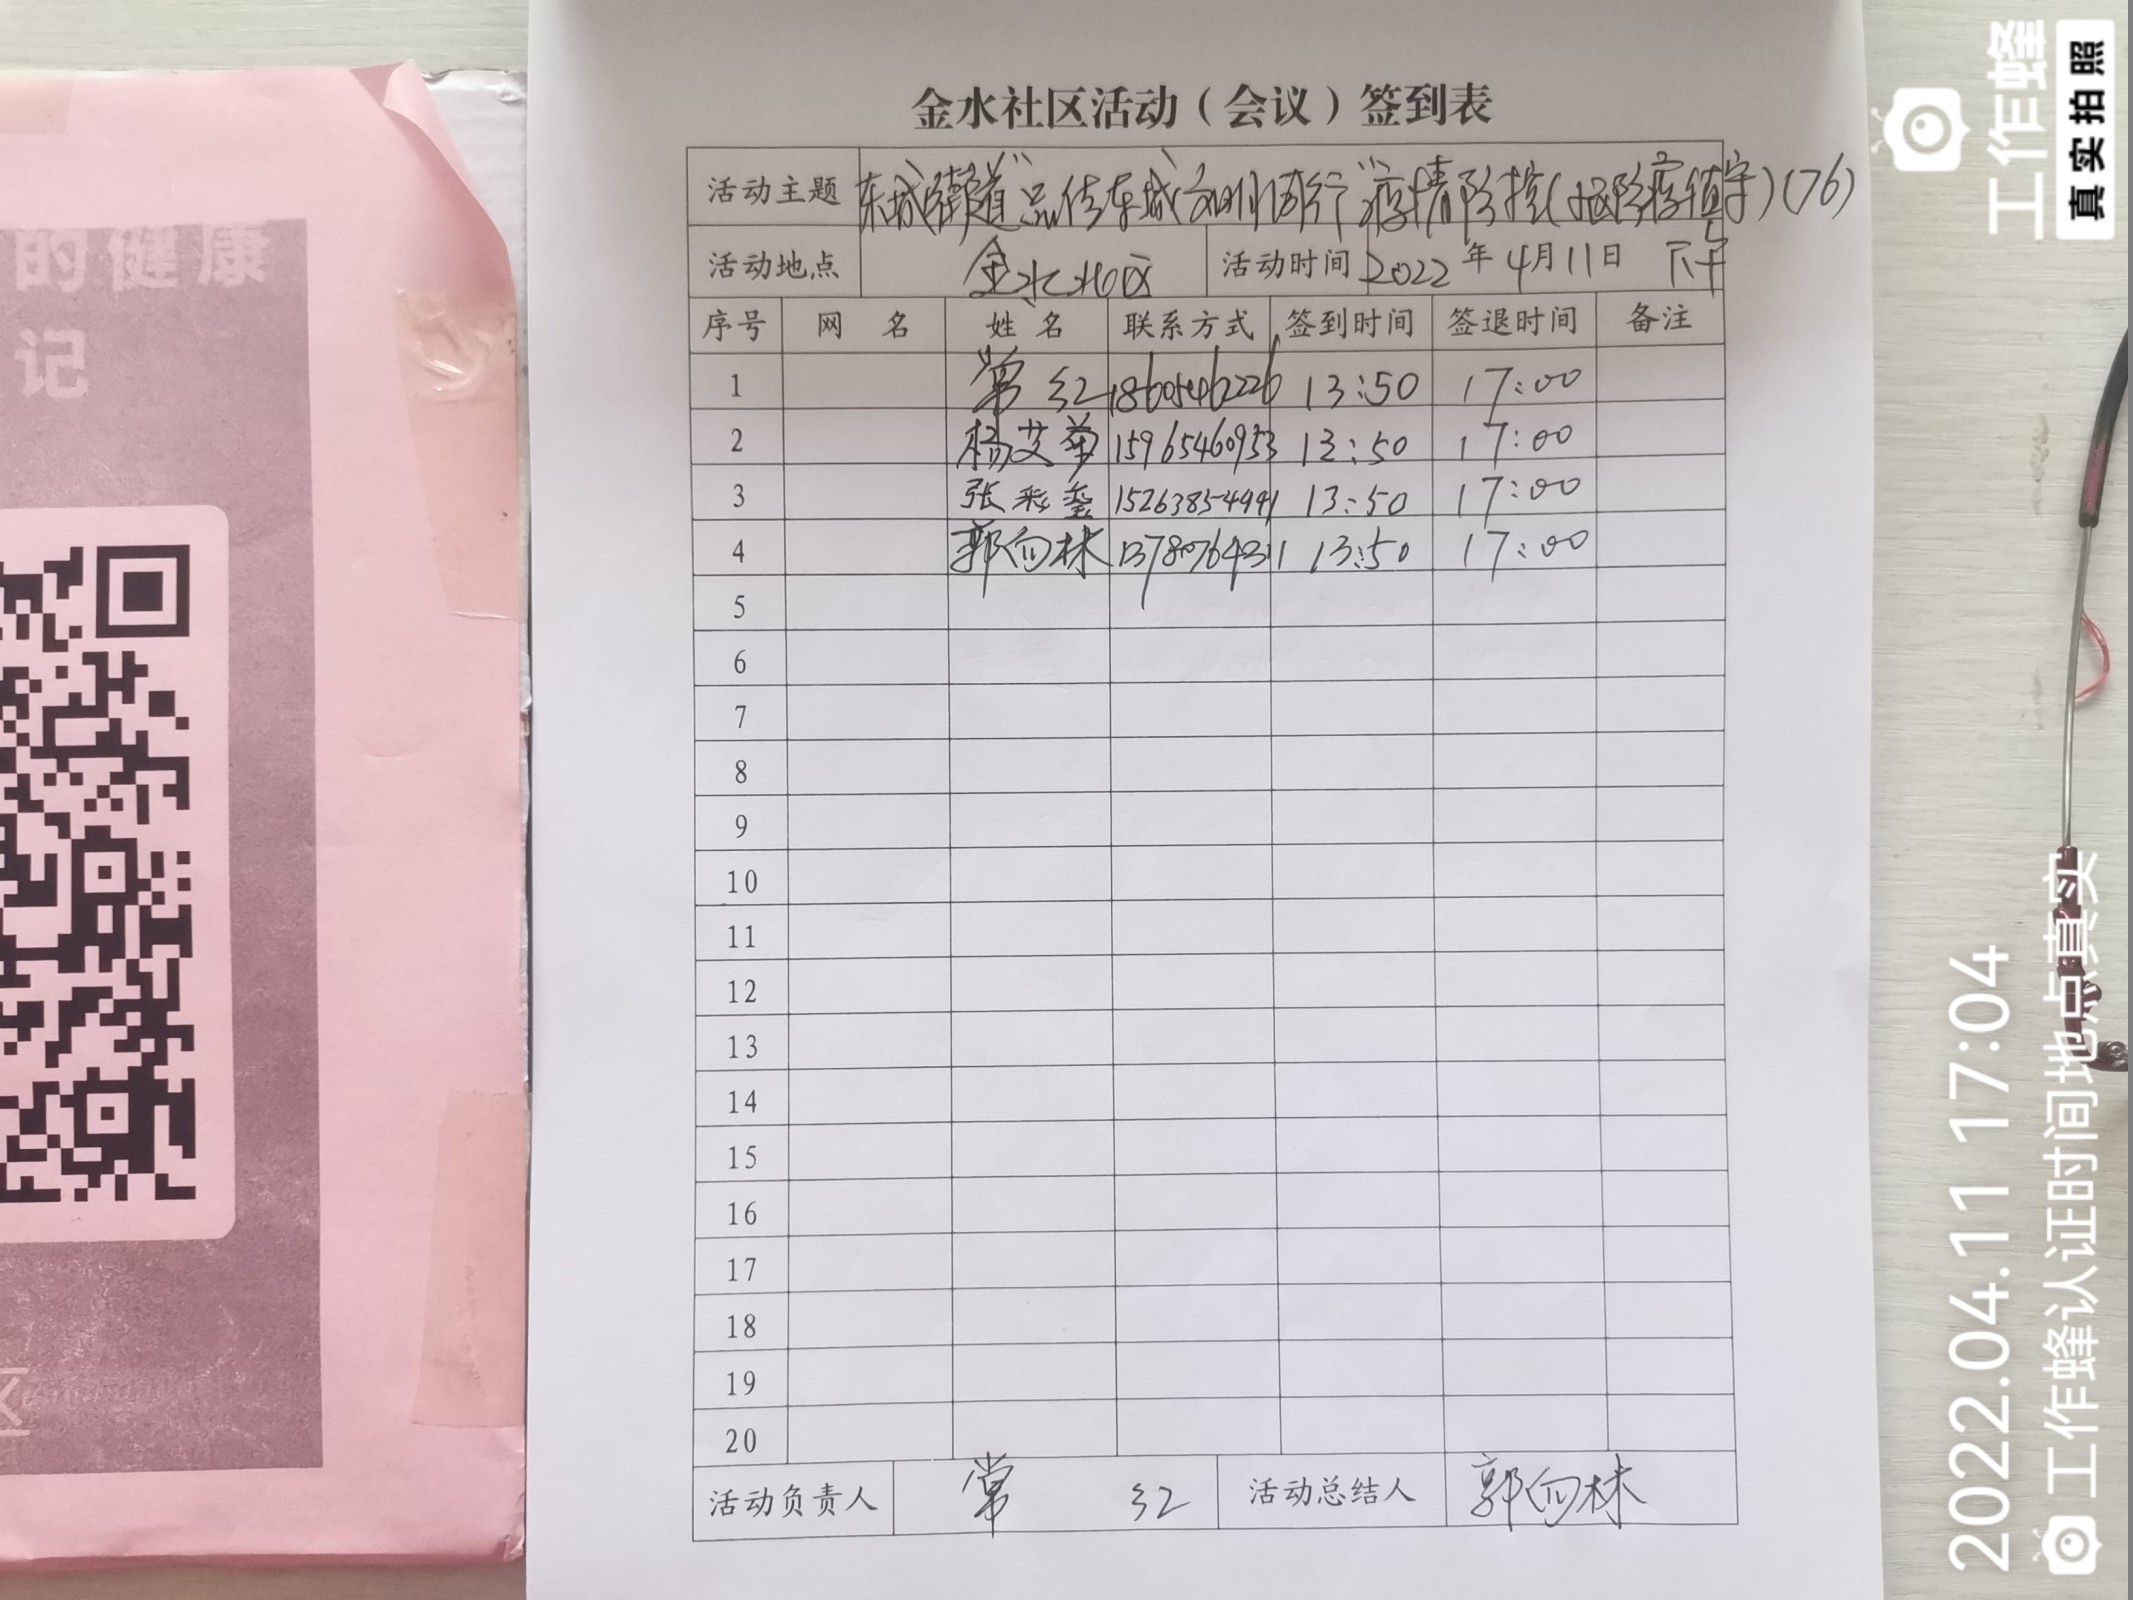 的健康
记
区
金水社区活动（会议）签到表
活动主题 东城街道“品传东城文明同行”疫情防控( 防疫值守)(76)
活动地点 金水社区 活动时间 2022年4月11日 下午
序号 网 名 姓 名 联系方式 签到时间 签退时间 备注
1 常红 18605462226 13:50 17:00
2 杨艾華 15965460953 13:50 17:00
3 张彩 15263854991 13:50 17:00
4 郭向林 13780764311 13:50 17:00
5
6
7
8
9
10
11
12
13
14
15
16
17
18
19
20
活动负责人 常 红 活动总结人 郭向林
工作蜂
真实拍照
2022.04.11 17:04
工作蜂认证时间地点真实